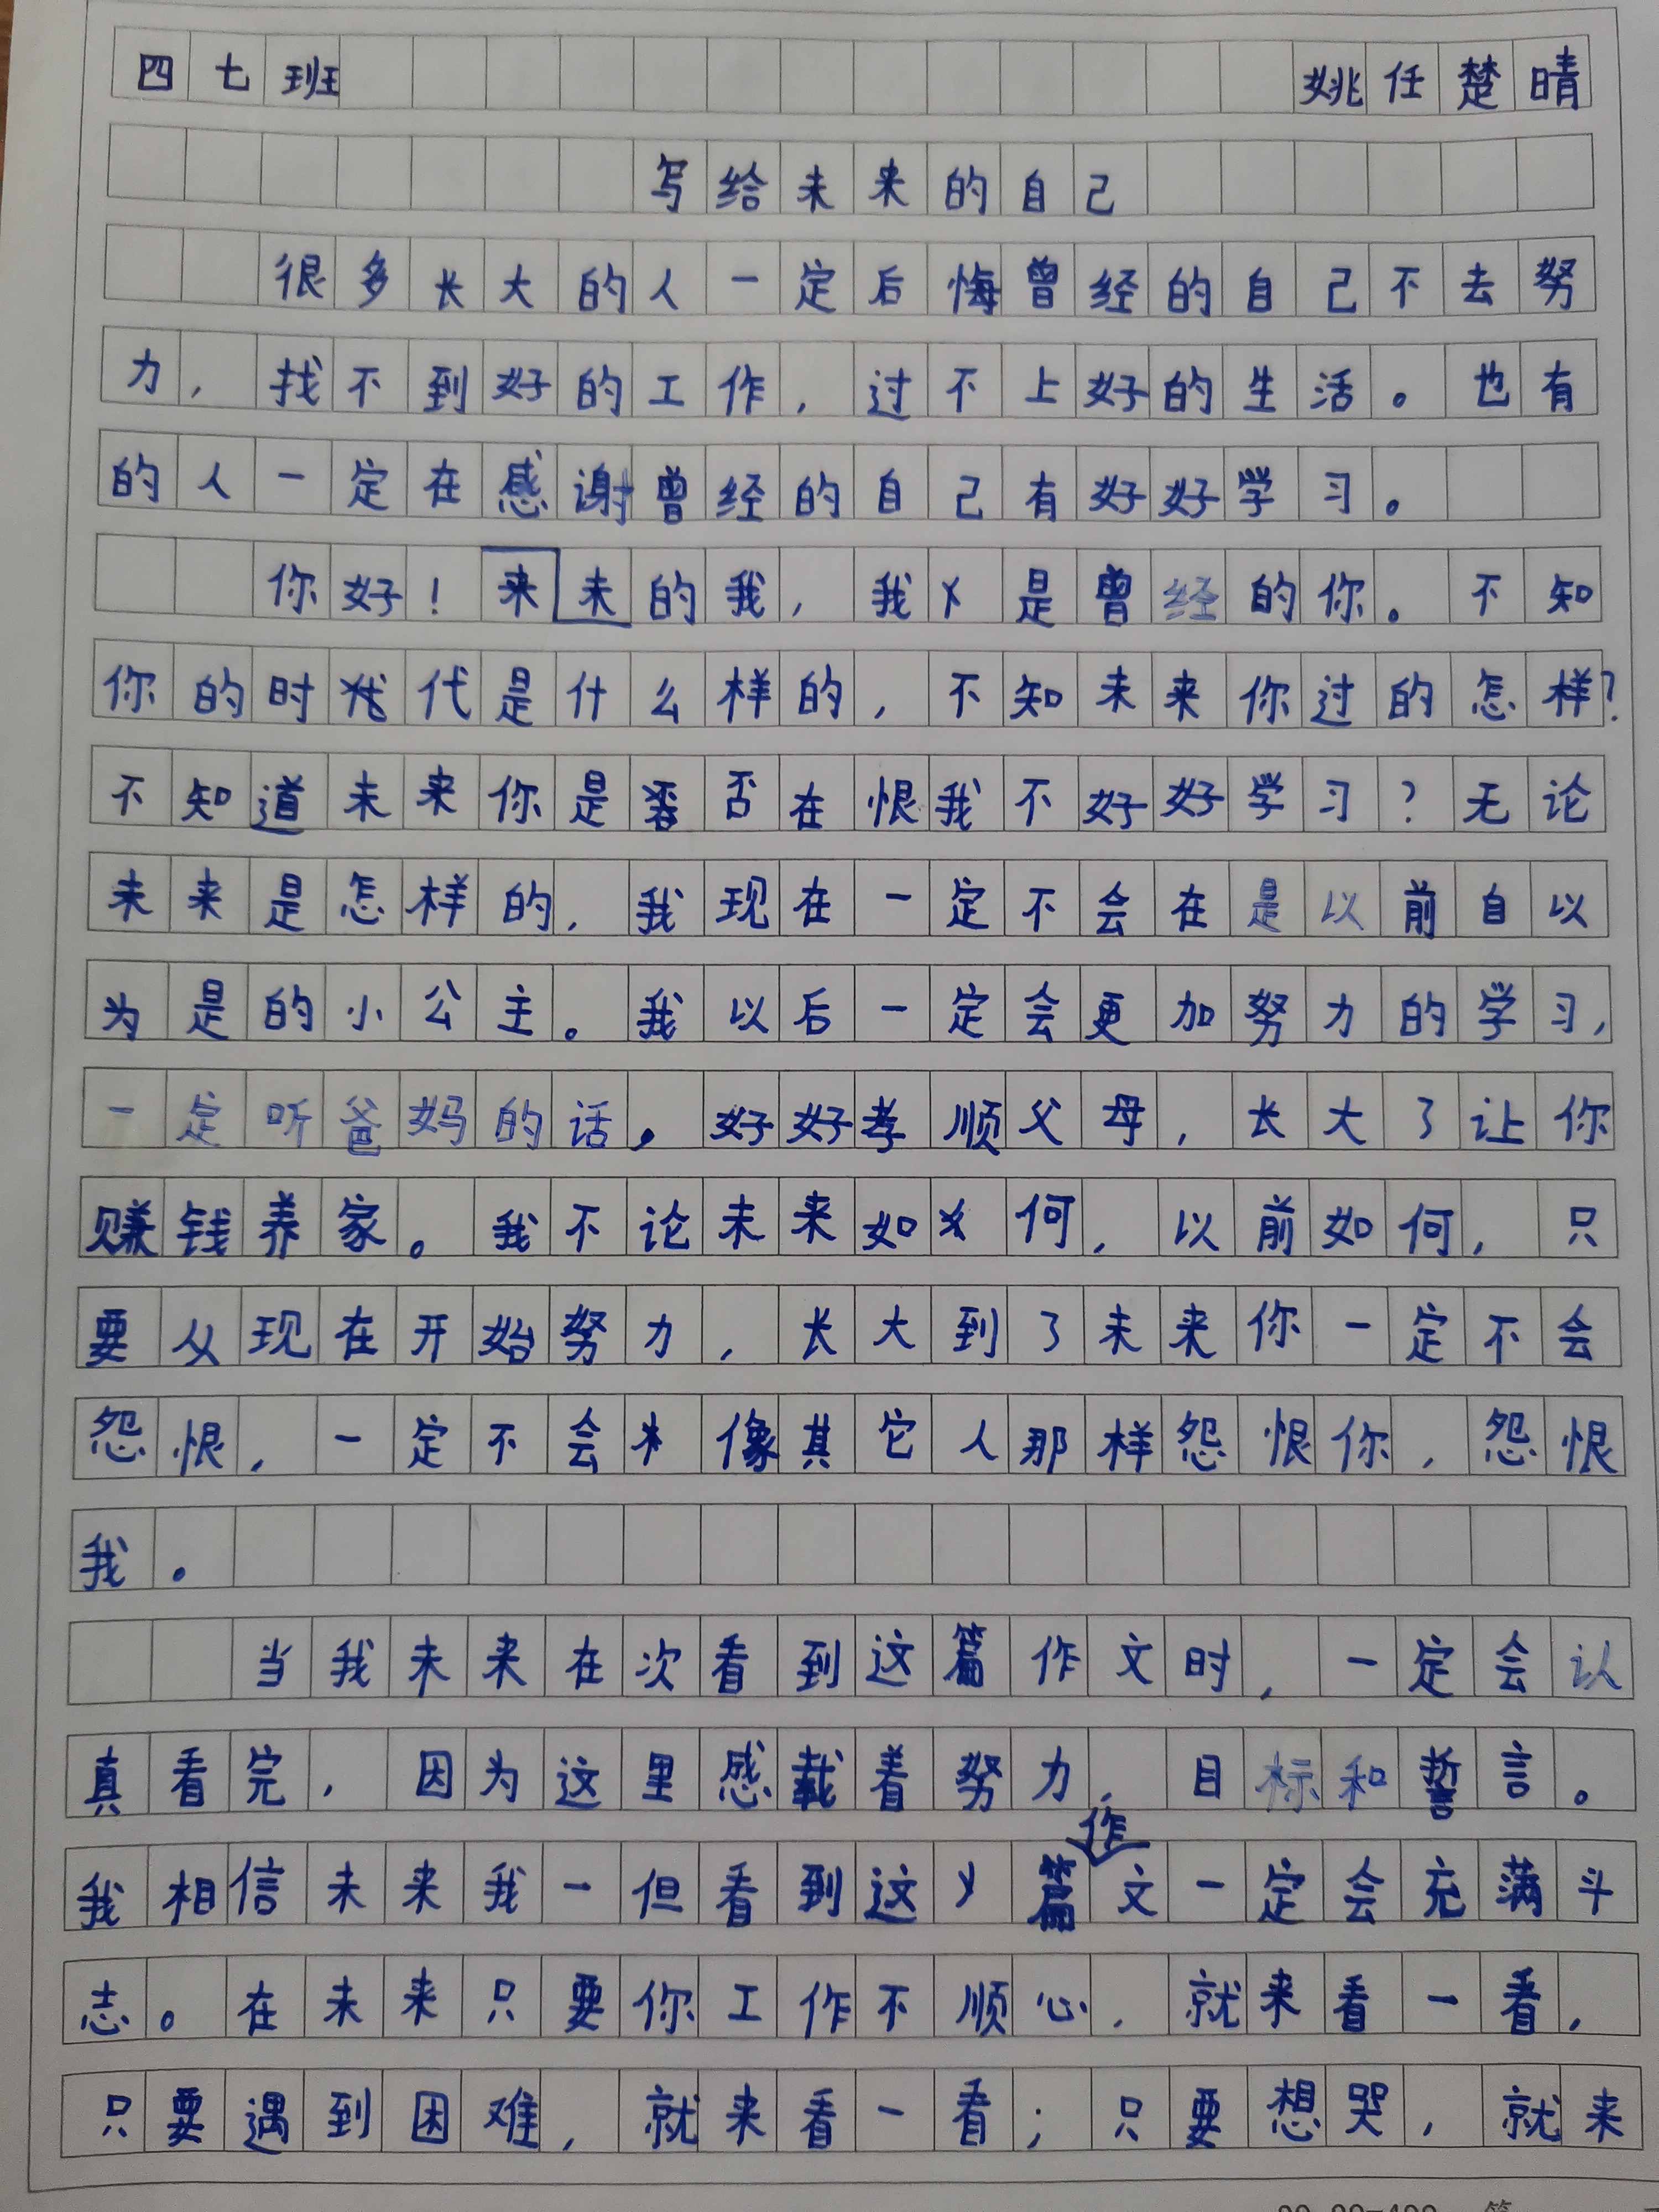 四七班 姚任楚晴
写给未来的自己
很多长大的人一定后悔曾经的自己不去努
力，找不到好的工作，过不上好的生活。也有
的人一定在感谢曾经的自己有好好学习。
你好！来未的我，我是曾经的你。不知
你的时代是什么样的，不知未来你过的怎样？
不知道未来你是否在恨我不好好学习？无论
未来是怎样的，我现在一定不会在是以前自以
为是的小公主。我以后一定会更加努力的学习，
一定听爸妈的话，好好孝顺父母，长大了让你
赚钱养家。我不论未来如何，以前如何，只
要从现在开始努力，长大到了未来你一定不会
怨恨，一定不会像其它人那样怨恨你，怨恨
我。
当我未来在次看到这篇作文时，一定会认
真看完，因为这里感载着努力，目标和誓言。
我相信未来我一但看到这篇作文一定会充满斗
志。在未来只要你工作不顺心，就来看一看，
只要遇到困难，就来看一看；只要想哭，就来